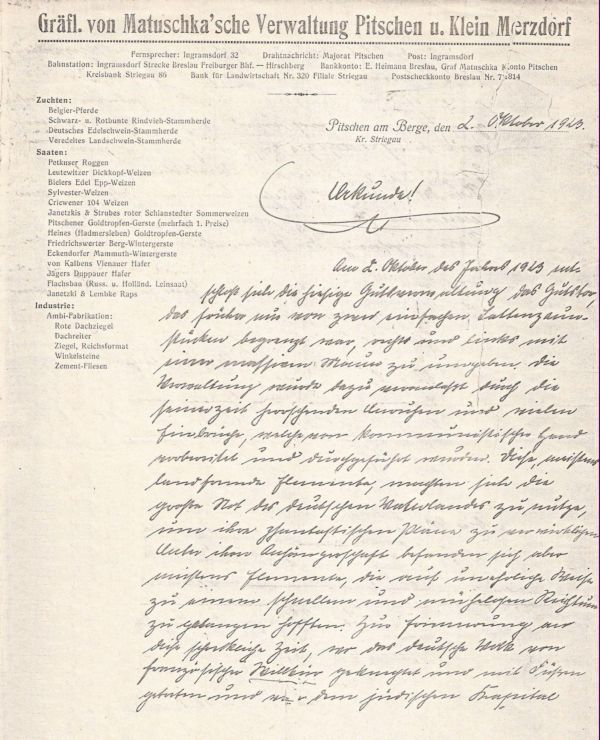 Gräfl. von Matuschka'sche Verwaltung Pitschen u. Klein Merzdorf
Fernsprecher: Ingramsdorf 32 Drahtnachricht: Majorat Pitschen Post: Ingramsdorf
Bahnstation: Ingramsdorf Strecke Breslau Freiburger Bhf. — Hirschberg Bankkonto: E. Heimann Breslau, Graf Matuschka Konto Pitschen
Kreisbank Striegau 86 Bank für Landwirtschaft Nr. 320 Filiale Striegau Postscheckkonto Breslau Nr. 7814
Zuchten:
Belgier-Pferde
Schwarz- u. Rotbunte Rindvieh-Stammherde
Deutsches Edelschwein-Stammherde
Veredeltes Landschwein-Stammherde
Pitschen am Berge, den 2. Oktober 1923.
Kr. Striegau
Saaten:
Petkuser Roggen
Leutewitzer Dickkopf-Weizen
Bielers Edel Epp-Weizen
Sylvester-Weizen
Criewener 104 Weizen
Janetzkis & Strubes roter Schlanstedter Sommerweizen
Pitschener Goldtropfen-Gerste (mehrfach 1. Preise)
Heines (Hadmersleben) Goldtropfen-Gerste
Friedrichswerter Berg-Wintergerste
Eckendorfer Mammuth-Wintergerste
von Kalbens Vienauer Hafer
Jägers Duppauer Hafer
Flachsbau (Russ. u. Holländ. Leinsaat)
Janetzki & Lembke Raps
Industrie:
Ambi-Fabrikation:
Rote Dachziegel
Dachreiter
Ziegel, Reichsformat
Winkelsteine
Zement-Fliesen
Urkunde!
Am 2. Oktober des Jahres 1923 ent-
schloß sich die hiesige Gutsverwaltung das Gutstor,
das früher nur von zwei einfachen Lattenzaun-
stücken begrenzt war, rechts und links mit
einer massiven Mauer zu umgeben. Die
Verwaltung wurde dazu veranlaßt durch die
seinerzeit herrschenden Unruhen und vielen
Einbrüche, welche von kommunistischer Hand
vorbereitet und durchgeführt wurden. Diese, meistens
landfremde Elemente, machten sich die
große Not des deutschen Vaterlandes zu nutze,
um ihre phantastischen Pläne zu verwirklichen
Unter ihrer Anhängerschaft befanden sich aber
meistens Elemente, die auf unehrliche Weise
zu einem schnellen und mühelosen Reichtum
zu gelangen hofften. Zur Erinnerung an
diese schreckliche Zeit, wo das deutsche Volk von
französischer Willkür geknechtet und mit Füßen
getreten und von dem jüdischen Kapital